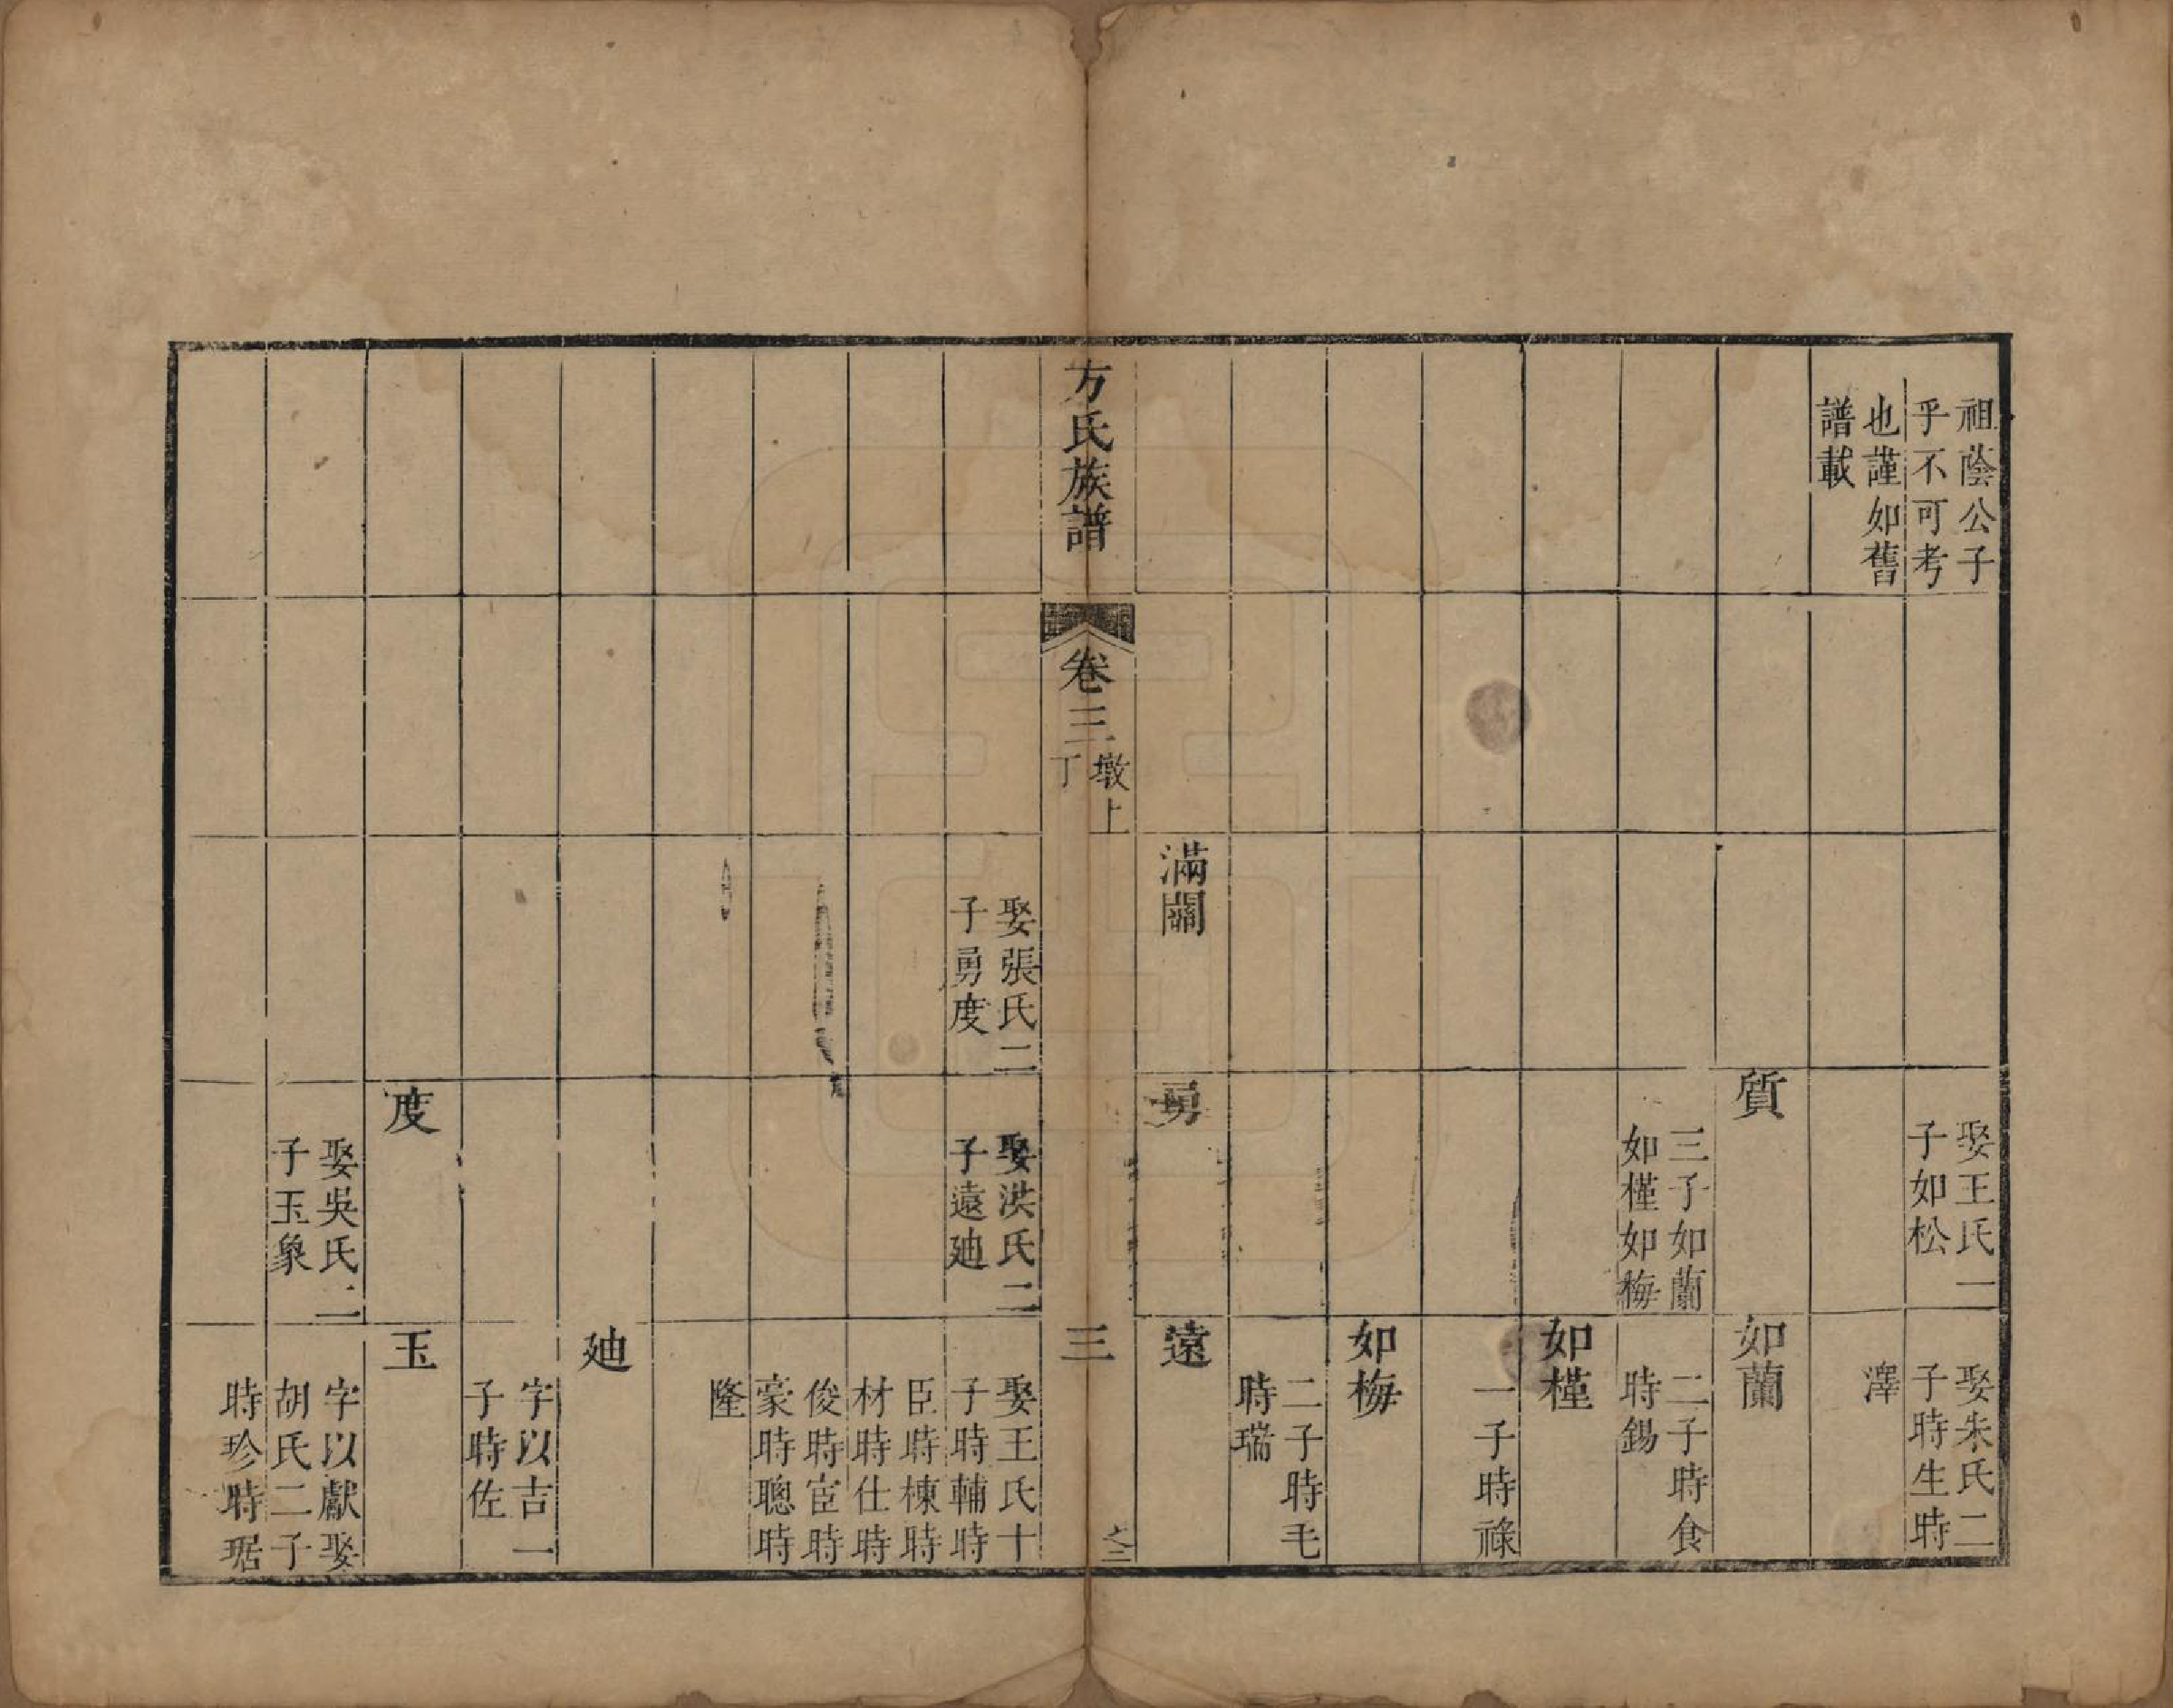 祖蔭公子
乎不可考
也謹如舊
譜載
娶王氏一
子如松
娶朱氏二
子時生時
澤
質
三子如蘭
如槿如梅
如蘭
二子時食
時錫
如槿
一子時祿
如梅
二子時毛
時瑞
滿關
勇
遠
方氏族譜
卷三
墩上
丁
三
娶張氏二
子勇度
娶洪氏二
子遠廸
娶王氏十
子時輔時
臣時棟時
材時仕時
俊時宦時
豪時聰時
隆
廸
字以吉一
子時佐
度
娶吳氏二
子玉象
玉
字以獻娶
胡氏二子
時珍時琚